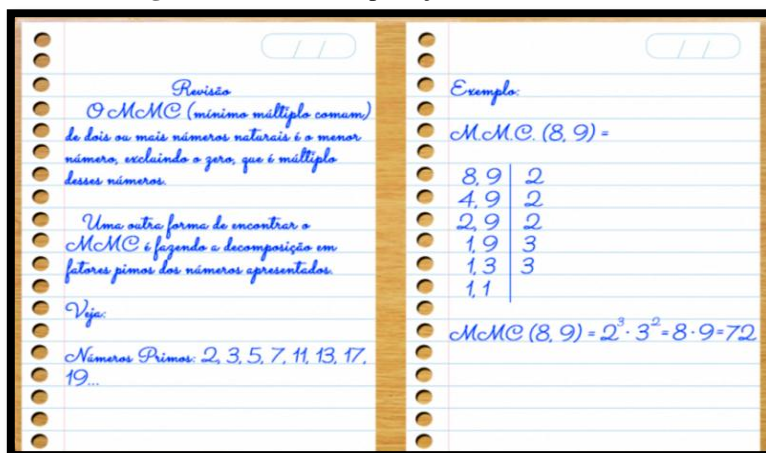 Revisão
O MMC (mínimo múltiplo comum)
de dois ou mais números naturais é o menor
número, excluindo o zero, que é múltiplo
desses números.
Uma outra forma de encontrar o
MMC é fazendo a decomposição em
fatores pimos dos números apresentados.
Veja:
Números Primos: 2, 3, 5, 7, 11, 13, 17,
19...
Exemplo:
M.M.C. (8, 9) =
8, 9 | 2
4, 9 | 2
2, 9 | 2
1, 9 | 3
1, 3 | 3
1, 1 |
MMC (8, 9) = 2³ · 3² = 8 · 9 = 72